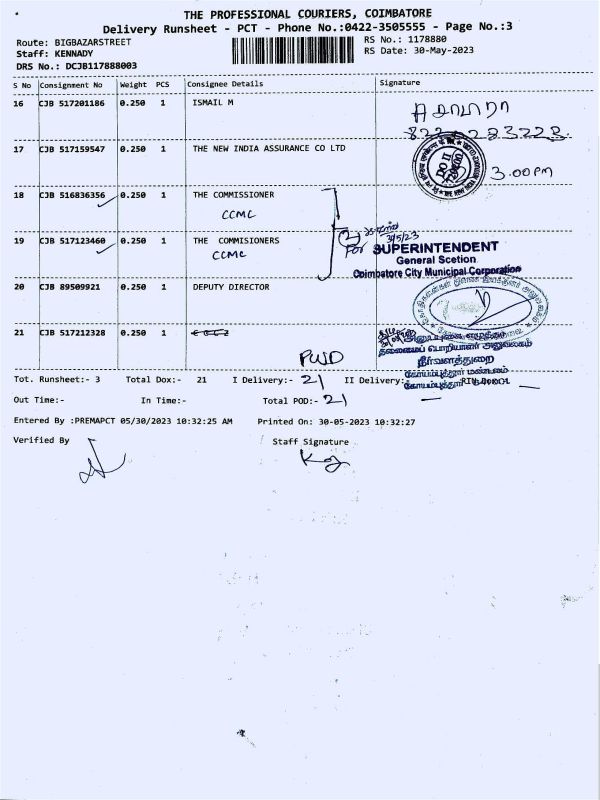 THE PROFESSIONAL COURIERS, COIMBATORE
Delivery Runsheet - PCT - Phone No.:0422-3505555 - Page No.:3
Route: BIGBAZARSTREET
Staff: KENNADY
DRS No.: DCJB117888003
RS No.: 1178880
RS Date: 30-May-2023
S No Consignment No Weight PCS Consignee Details Signature
16 CJB 517201186 0.250 1 ISMAIL M
17 CJB 517159547 0.250 1 THE NEW INDIA ASSURANCE CO LTD
3.00 PM
18 CJB 516836356 0.250 1 THE COMMISSIONER
CCMC
19 CJB 517123460 0.250 1 THE COMMISIONERS
CCMC
For SUPERINTENDENT
General Scetion
Coimbatore City Municipal Corporation
20 CJB 89509921 0.250 1 DEPUTY DIRECTOR
21 CJB 517212328 0.250 1
PWD
தலைமைப் பொறியாளர் அலுவலகம்
நீர்வளத்துறை
கோயம்புத்தூர் மண்டலம்
Tot. Runsheet:- 3 Total Dox:- 21 I Delivery:- 21 II Delivery:-
கோயம்புத்தூர்
Out Time:- In Time:- Total POD:- 21
Entered By :PREMAPCT 05/30/2023 10:32:25 AM Printed On: 30-05-2023 10:32:27
Verified By Staff Signature